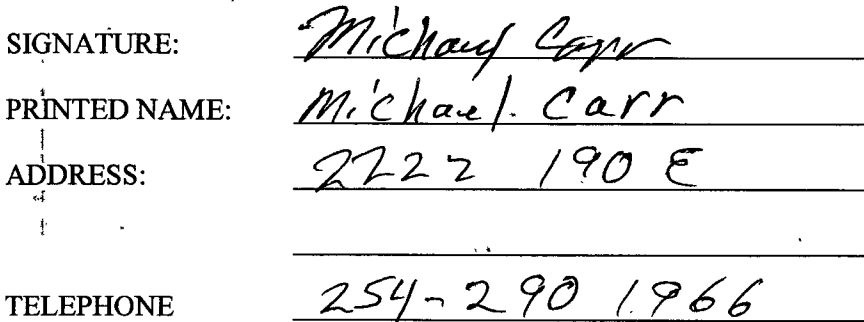 SIGNATURE: Michael Carr
PRINTED NAME: Michael Carr
ADDRESS: 2222 190 E
TELEPHONE 254-290 1966